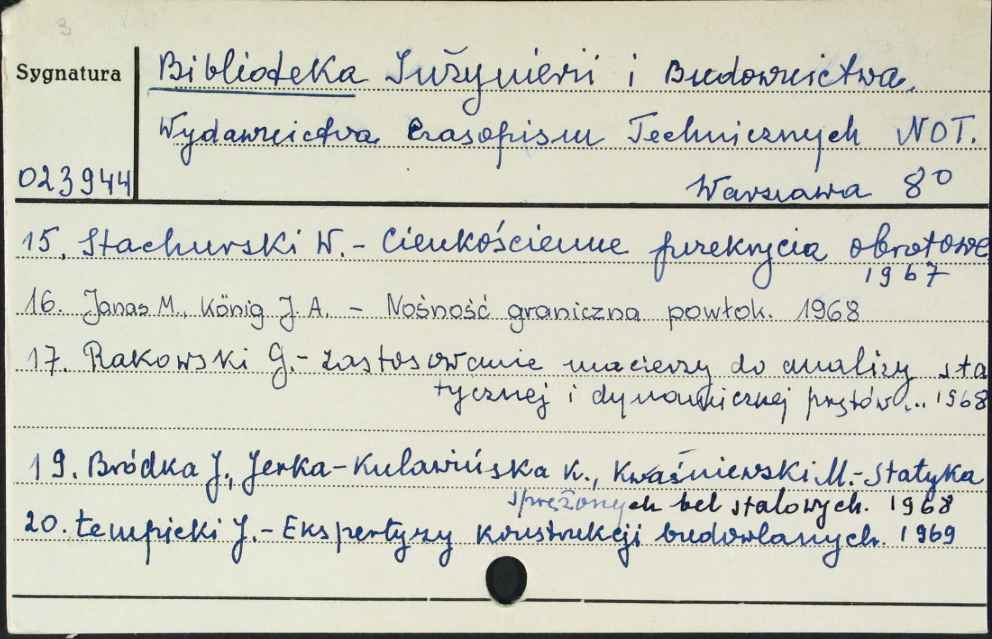 3
Sygnatura
Biblioteka Inżynierii i Budownictwa.
Wydawnictwa Czasopism Technicznych NOT.
023944
Warszawa 8⁰
15. Stachurski W. - Cienkościenne przekrycia obrotowe
1967
16. Janas M., König J. A. - Nośność graniczna powłok. 1968
17. Rakowski G. - zastosowanie macierzy do analizy sta
tycznej i dynamicznej prętów... 1968
19. Bródka J., Jerka-Kulawińska K., Kwaśniewski M. - Statyka
sprężonych bel stalowych. 1968
20. Łempicki J. - Ekspertyzy konstrukcji budowlanych. 1969